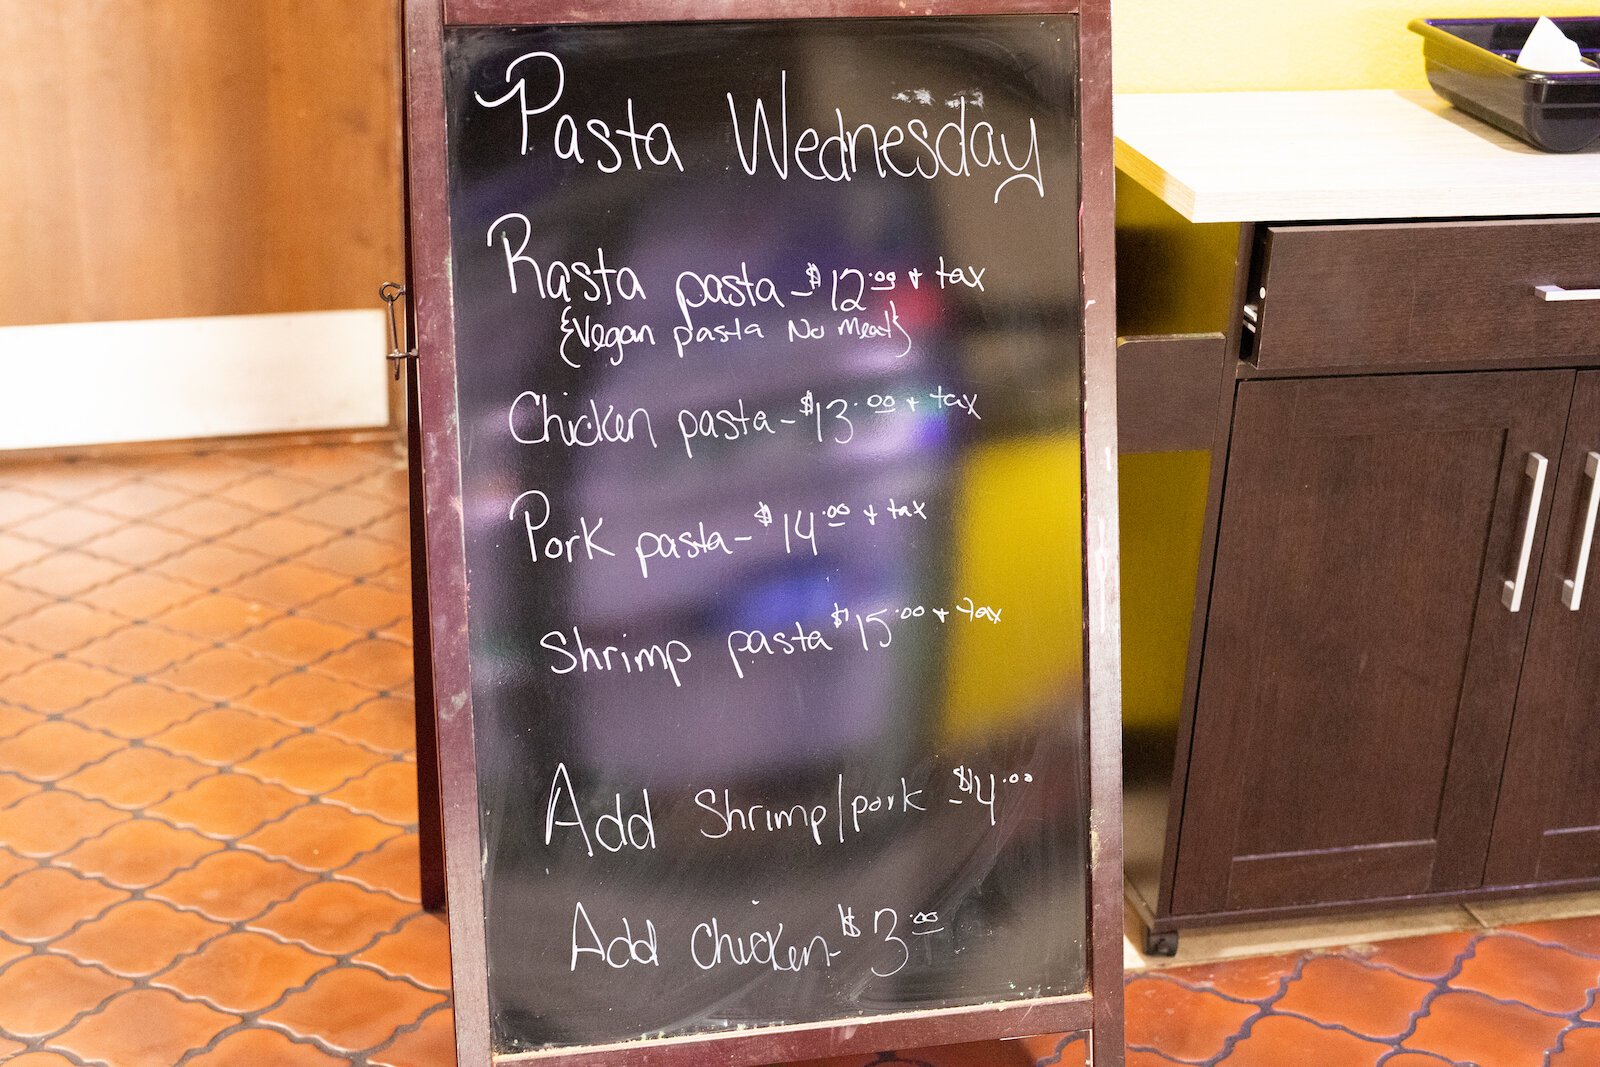 Pasta Wednesday
Rasta pasta - $12.00 + tax
{Vegan pasta No Meat}
Chicken pasta - $13.00 + tax
Pork pasta - $14.00 + tax
Shrimp pasta $15.00 + tax
Add Shrimp/pork - $4.00
Add Chicken - $3.00